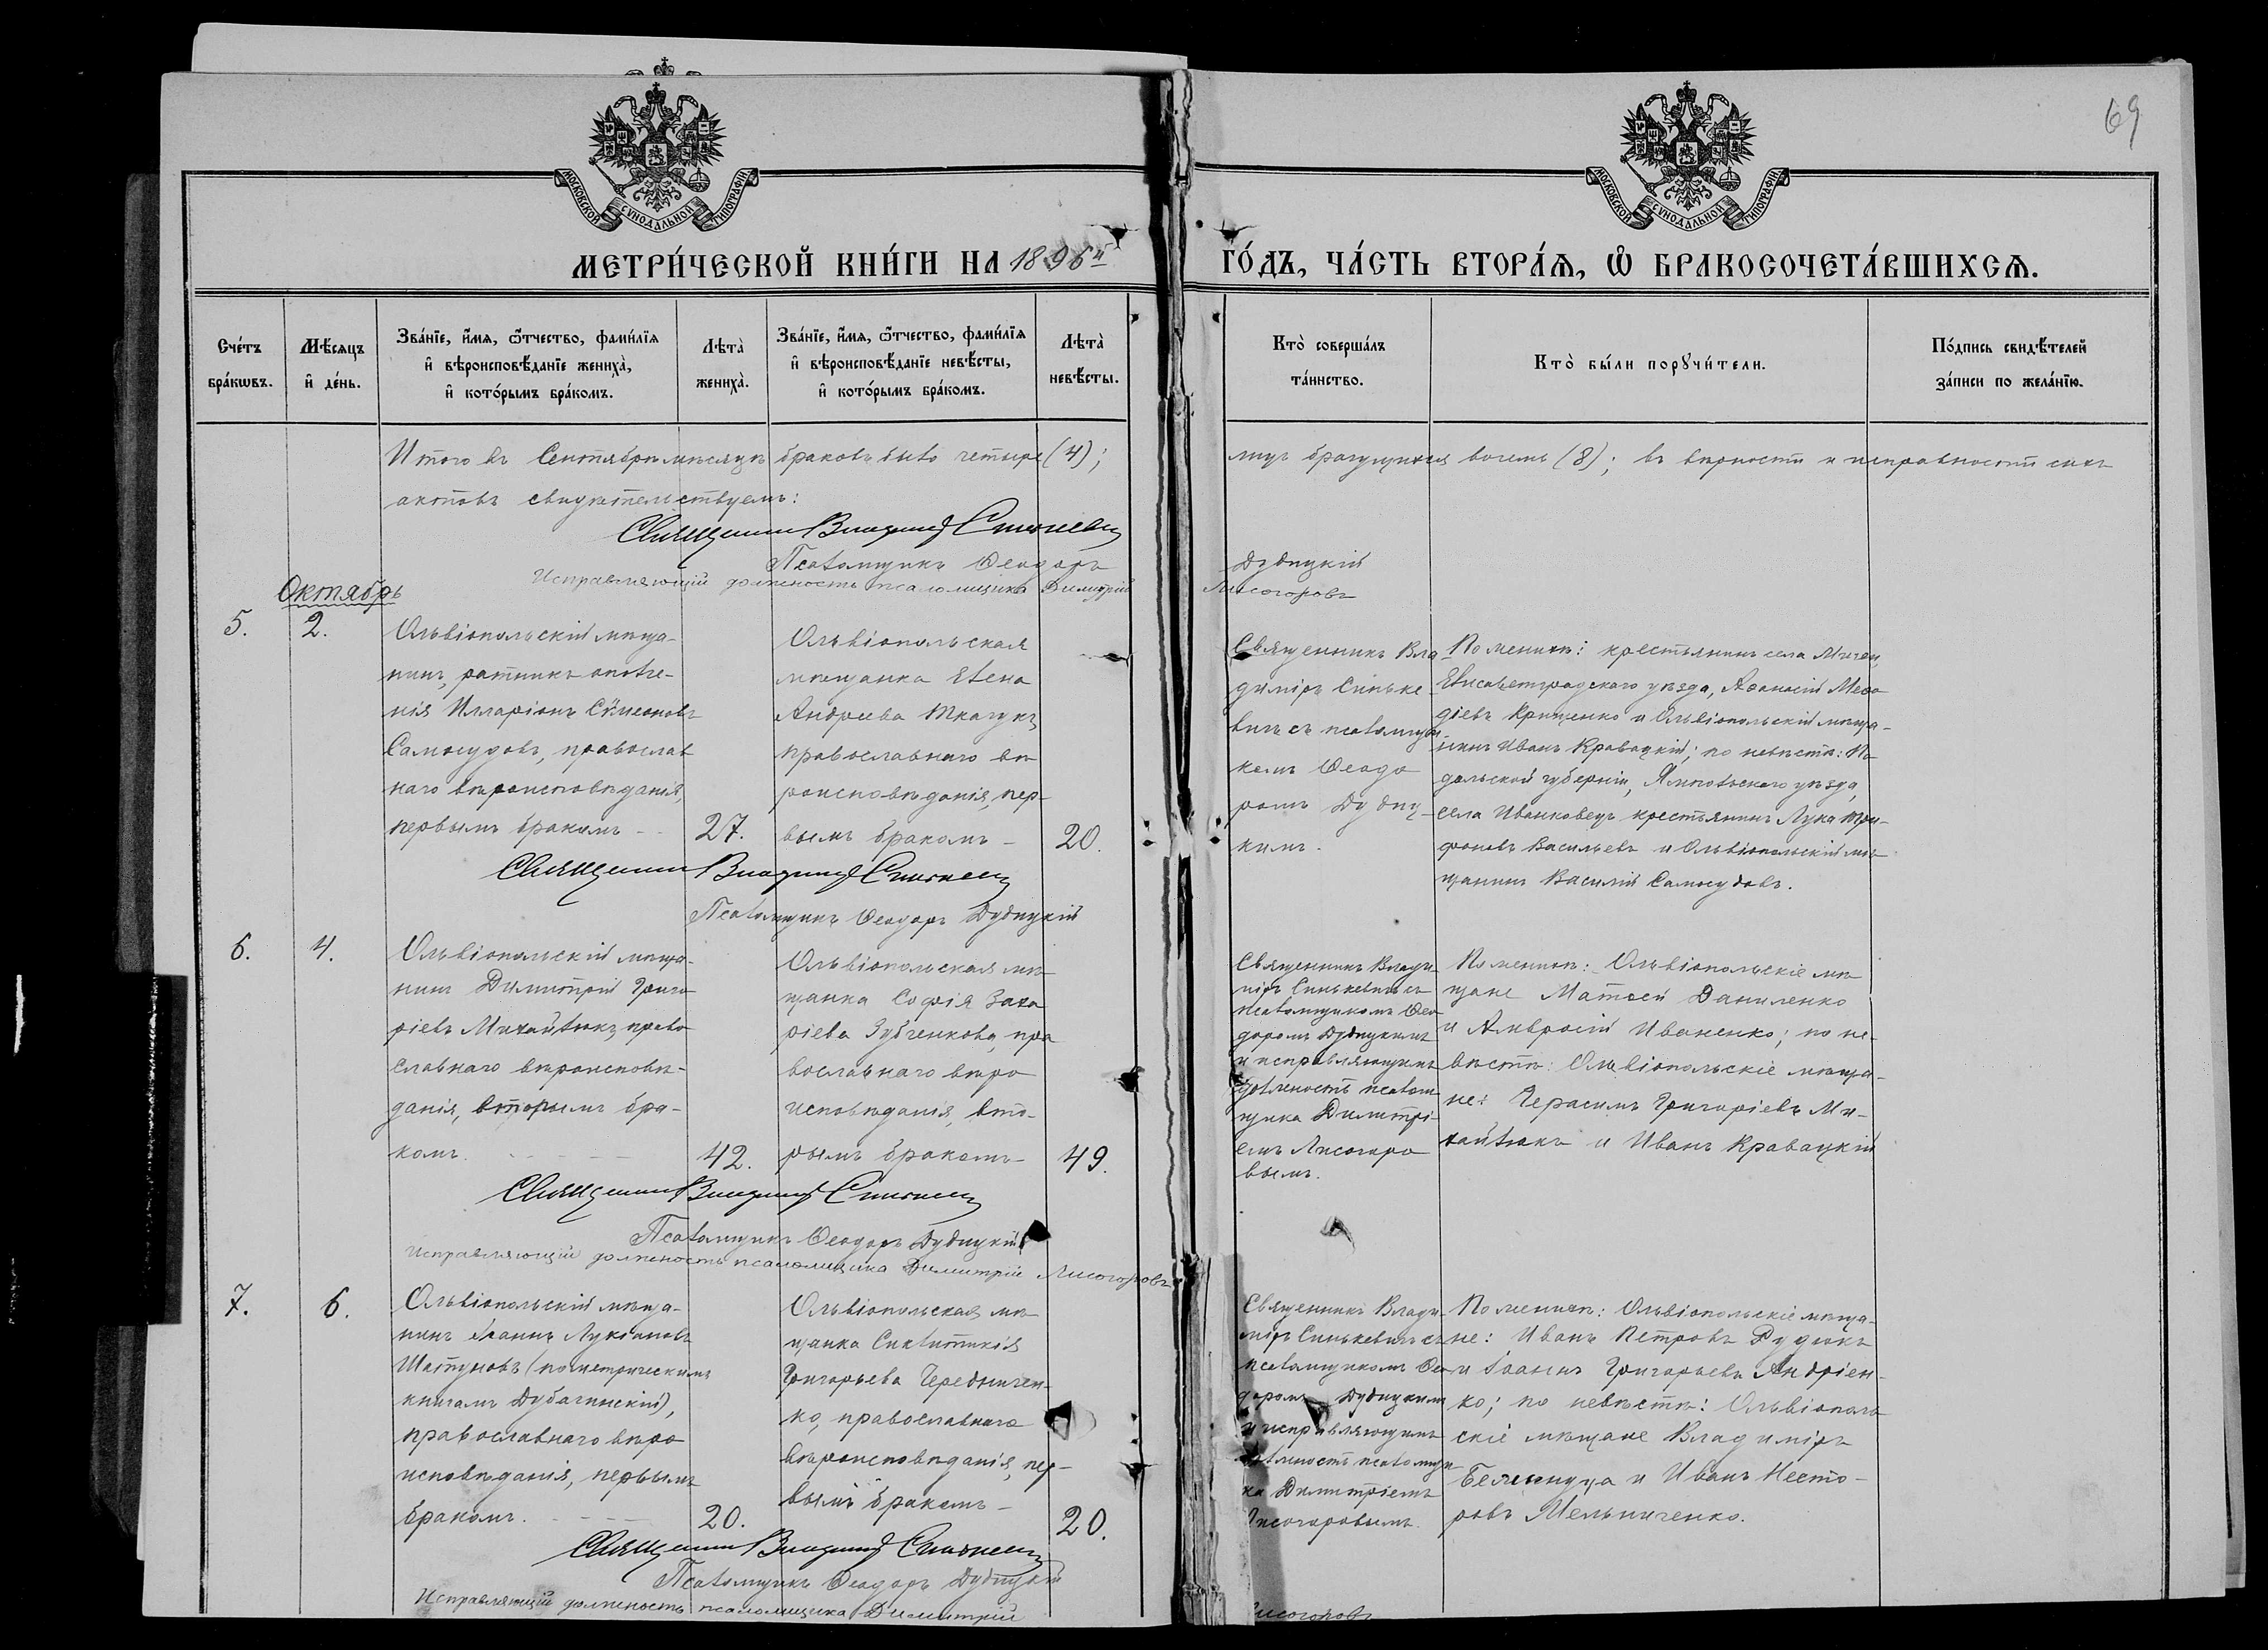 69
МОСКОВСКОЙ СѴНОДАЛЬНОЙ ТИПОГРАФІИ
МОСКОВСКОЙ СѴНОДАЛЬНОЙ ТИПОГРАФІИ
МЕТРИ́ЧЕСКОЙ КНИ́ГИ НА 1896й ГО́ДЪ, ЧА́СТЬ ВТОРА́Я, Ѡ БРАКОСОЧЕТА́ВШИХСѦ.
Сче́тъ бра́кѡвъ.
Мѣ́сяцъ и҆ де́нь.
Зва́нїе, и҆́мѧ, ѻ҆́тчество, фами́лїѧ
и҆ вѣроисповѣ́данїе жениха̀,
и҆ кото́рымъ бра́комъ.
Лѣта̀ жениха̀.
Зва́нїе, и҆́мѧ, ѻ҆́тчество, фами́лїѧ
и҆ вѣроисповѣ́данїе невѣ́сты,
и҆ кото́рымъ бра́комъ.
Лѣта̀ невѣ́сты.
Кто̀ соверша́лъ та́инство.
Кто̀ бы́ли порꙋчи́тели.
По́дпись свидѣ́телей за́писи по жела́нїю.
Итого въ Сентябрѣ мѣсяцѣ браковъ было четыре (4); лицъ брачущихся восемь (8); въ вѣрности и исправности сихъ
актовъ свидѣтельствуемъ:
Священникъ Владиміръ Синькевичъ
Псаломщикъ Ѳеодоръ Дудицкій
Исправляющій должность псаломщика Димитрій Лисогоровъ
Октябрь
5.
2.
Ольвіопольскій мѣща-
нинъ, ратникъ ополче-
нія Илларіонъ Сѵмеоновъ
Самосудовъ, православ
наго вѣроисповѣданія,
первымъ бракомъ -
27.
Ольвіопольская
мѣщанка Елена
Андреева Ткачукъ,
православнаго вѣ
роисповѣданія, пер-
вымъ бракомъ -
20.
Священникъ Вла
диміръ Синьке
вичъ съ псаломщи
комъ Ѳеодо
ромъ Дудиц-
кимъ.
По женихѣ: крестьянинъ села Мигеи,
Елисаветградскаго уѣзда, Аѳанасій Меѳо
діевъ Крищенко и Ольвіопольскій мѣща-
нинъ Иванъ Кравацкій; по невѣстѣ: По
дольской губерніи, Ямпольскаго уѣзда,
села Иванковецъ крестьянинъ Лука Три-
фоновъ Васильевъ и Ольвіопольскій мѣ
щанинъ Василій Самосудовъ.
Священникъ Владиміръ Синькевичъ
Псаломщикъ Ѳеодоръ Дудицкій
6.
4.
Ольвіопольскій мѣща-
нинъ Димитрій Григо
ріевъ Михайлюкъ, право
славнаго вѣроисповѣ-
данія, вторымъ бра-
комъ.
42.
Ольвіопольская мѣ
щанка Софія Заха
ріева Зубченкова, пра
вославнаго вѣро
исповѣданія, вто-
рымъ бракомъ -
49.
Священникъ Влади
міръ Синькевичъ съ
псаломщикомъ Ѳео
доромъ Дудицкимъ
и исправляющимъ
должность псалом
щика Димитрі-
емъ Лисогоро
вымъ.
По женихѣ: Ольвіопольскіе мѣ
щане Матѳей Даниленко
и Амвросій Иваненко; по не-
вѣстѣ: Ольвіопольскіе мѣща-
не: Герасимъ Григоріевъ Ми-
хайлюкъ и Иванъ Кравацкій
Священникъ Владиміръ Синькевичъ
Псаломщикъ Ѳеодоръ Дудицкій
Исправляющій должность псаломщика Димитрій Лисогоровъ
7.
6.
Ольвіопольскій мѣща-
нинъ Іоаннъ Лукіановъ
Шатуновъ (по метрическимъ
книгамъ Дубачинскій),
православнаго вѣро
исповѣданія, первымъ
бракомъ.
20.
Ольвіопольская мѣ
щанка Синклитикія
Григорьева Чередничен-
ко, православнаго
вѣроисповѣданія, пер-
вымъ бракомъ -
20.
Священникъ Влади
міръ Синькевичъ съ
псаломщикомъ Ѳео
доромъ Дудицкимъ
и исправляющимъ
должность псаломщи
ка Димитріемъ
Лисогоровымъ.
По женихѣ: Ольвіопольскіе мѣща-
не: Иванъ Петровъ Дудюкъ
и Іоаннъ Григорьевъ Андріен-
ко; по невѣстѣ: Ольвіополь
скіе мѣщане Владиміръ
и Иванъ Несто-
ровъ Мельниченко.
Священникъ Владиміръ Синькевичъ
Псаломщикъ Ѳеодоръ Дудицкій
Исправляющій должность псаломщика Димитрій Лисогоровъ